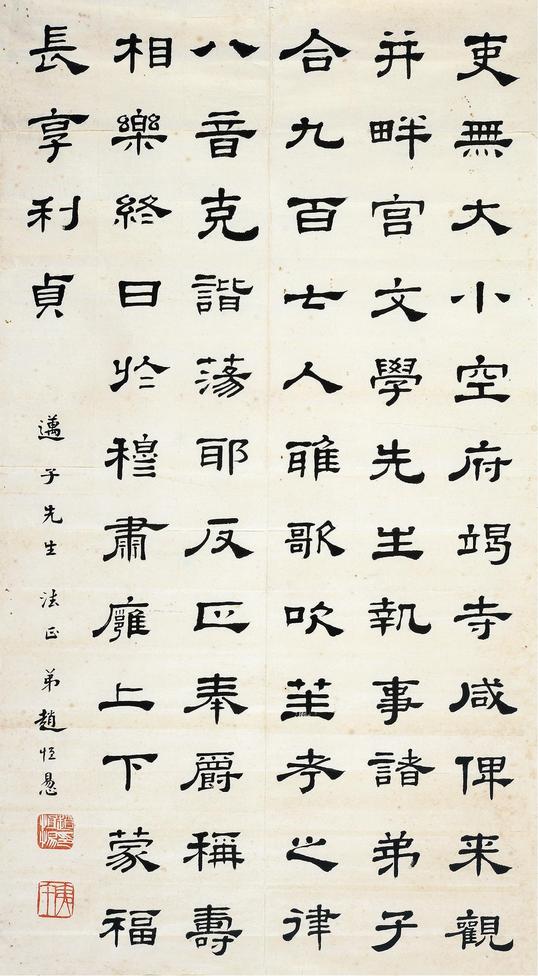 吏無大小空府竭寺咸俾来觀
并畔宮文學先生執事諸弟子
合九百七人雅歌吹笙考之律
八音克諧蕩耶反正奉爵稱壽
相樂終日於穆肅廱上下蒙福
長享利貞
邁子先生 法正 弟趙恒惖
夷午